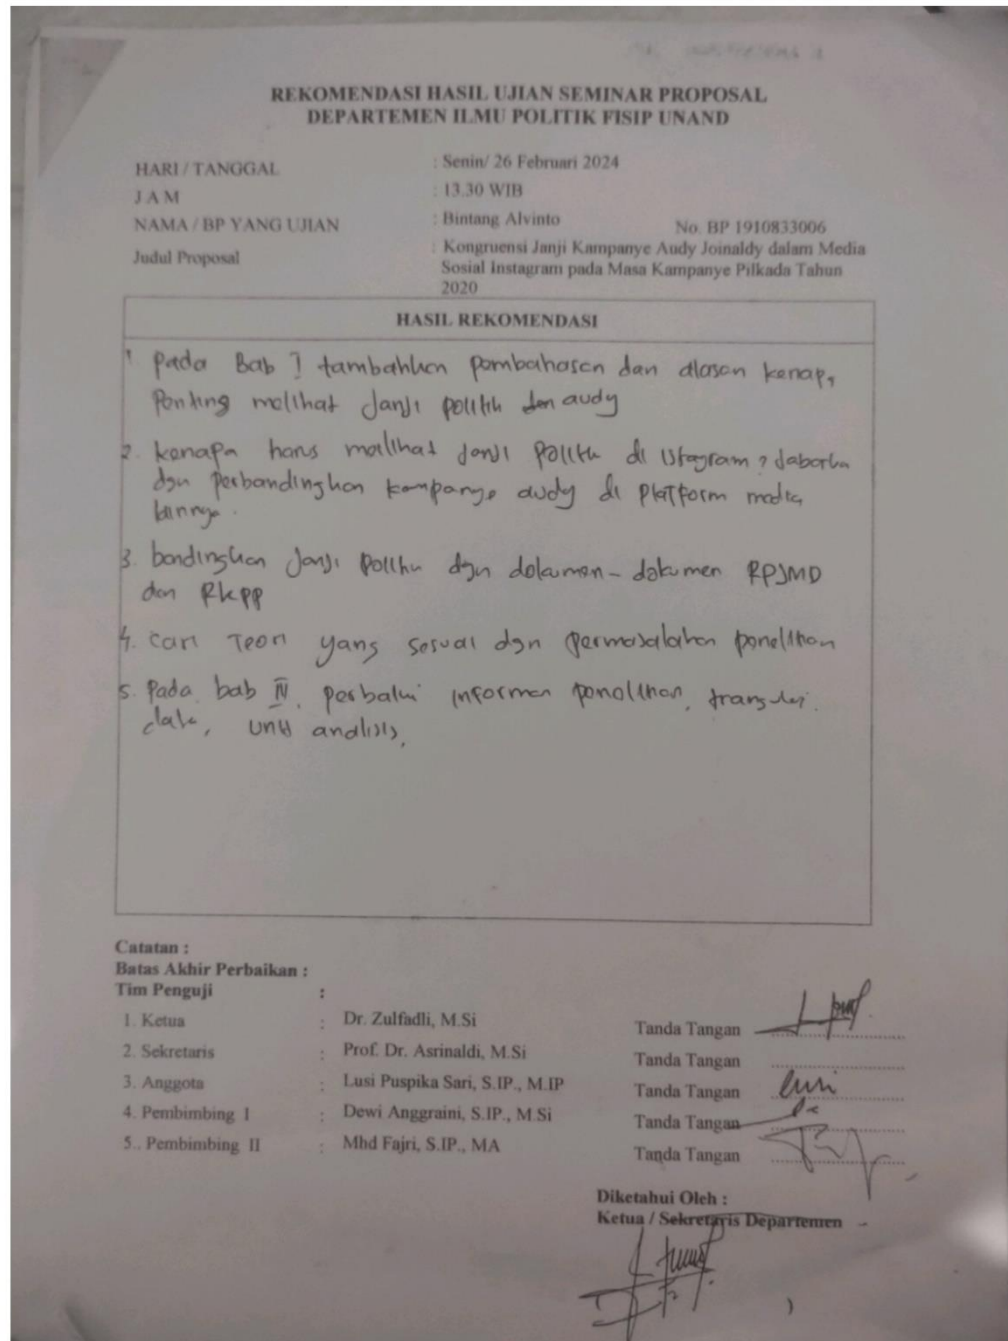 REKOMENDASI HASIL UJIAN SEMINAR PROPOSAL
DEPARTEMEN ILMU POLITIK FISIP UNAND
HARI / TANGGAL : Senin/ 26 Februari 2024
J A M : 13.30 WIB
NAMA / BP YANG UJIAN : Bintang Alvinto No. BP 1910833006
Judul Proposal : Kongruensi Janji Kampanye Audy Joinaldy dalam Media
Sosial Instagram pada Masa Kampanye Pilkada Tahun
2020
HASIL REKOMENDASI
1. Pada Bab I tambahkan pembahasan dan alasan kenapa
Penting melihat Janji politik audy
2. kenapa harus melihat Janji Politik di istagram? Jabarkan
dgn perbandingkan kampanye audy di platform media
lainnya.
3. bandingkan Janji Politik dgn dokumen-dokumen RPJMD
dan RKPP
4. cari Teori yang sesuai dgn permasalahan penelitian
5. Pada bab IV, perbaiki informan penelitian,
data, unit analisis,
Catatan :
Batas Akhir Perbaikan :
Tim Penguji :
1. Ketua : Dr. Zulfadli, M.Si Tanda Tangan
2. Sekretaris : Prof. Dr. Asrinaldi, M.Si Tanda Tangan
3. Anggota : Lusi Puspika Sari, S.IP., M.IP Tanda Tangan
4. Pembimbing I : Dewi Anggraini, S.IP., M.Si Tanda Tangan
5.. Pembimbing II : Mhd Fajri, S.IP., MA Tanda Tangan
Diketahui Oleh :
Ketua / Sekretaris Departemen